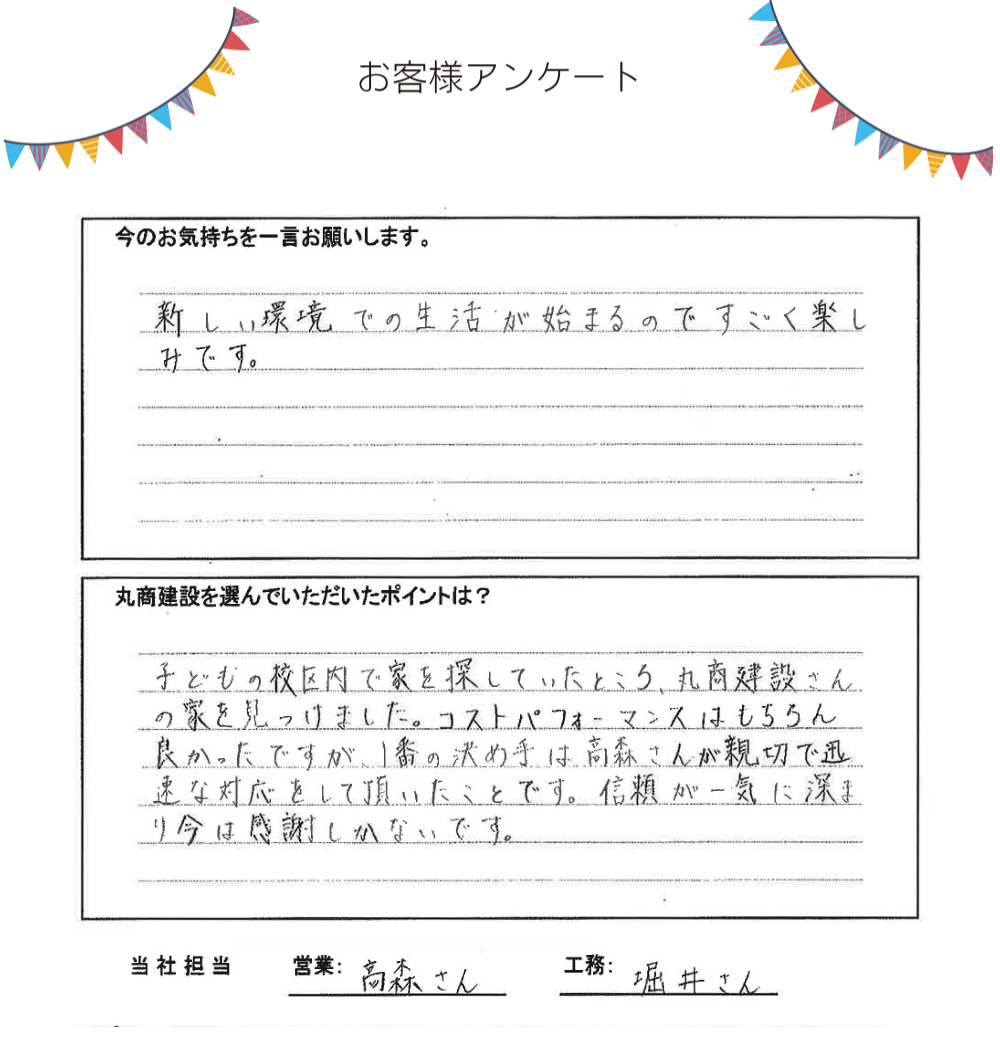 お客様アンケート
今のお気持ちを一言お願いします。
新しい環境での生活が始まるのですごく楽し
みです。
丸商建設を選んでいただいたポイントは？
子どもの校区内で家を探していたところ、丸商建設さん
の家を見つけました。コストパフォーマンスはもちろん
良かったですが、1番の決め手は高森さんが親切で迅
速な対応をして頂いたことです。信頼が一気に深ま
り今は感謝しかないです。
当社担当 営業: 高森さん 工務: 堀井さん